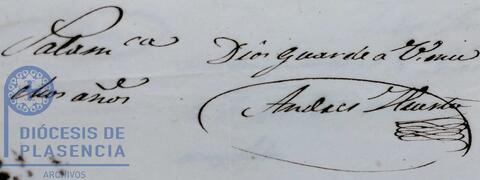 Salam.ca Dios guarde a V. mu
chos años
Andres
DIÓCESIS DE
PLASENCIA
ARCHIVOS